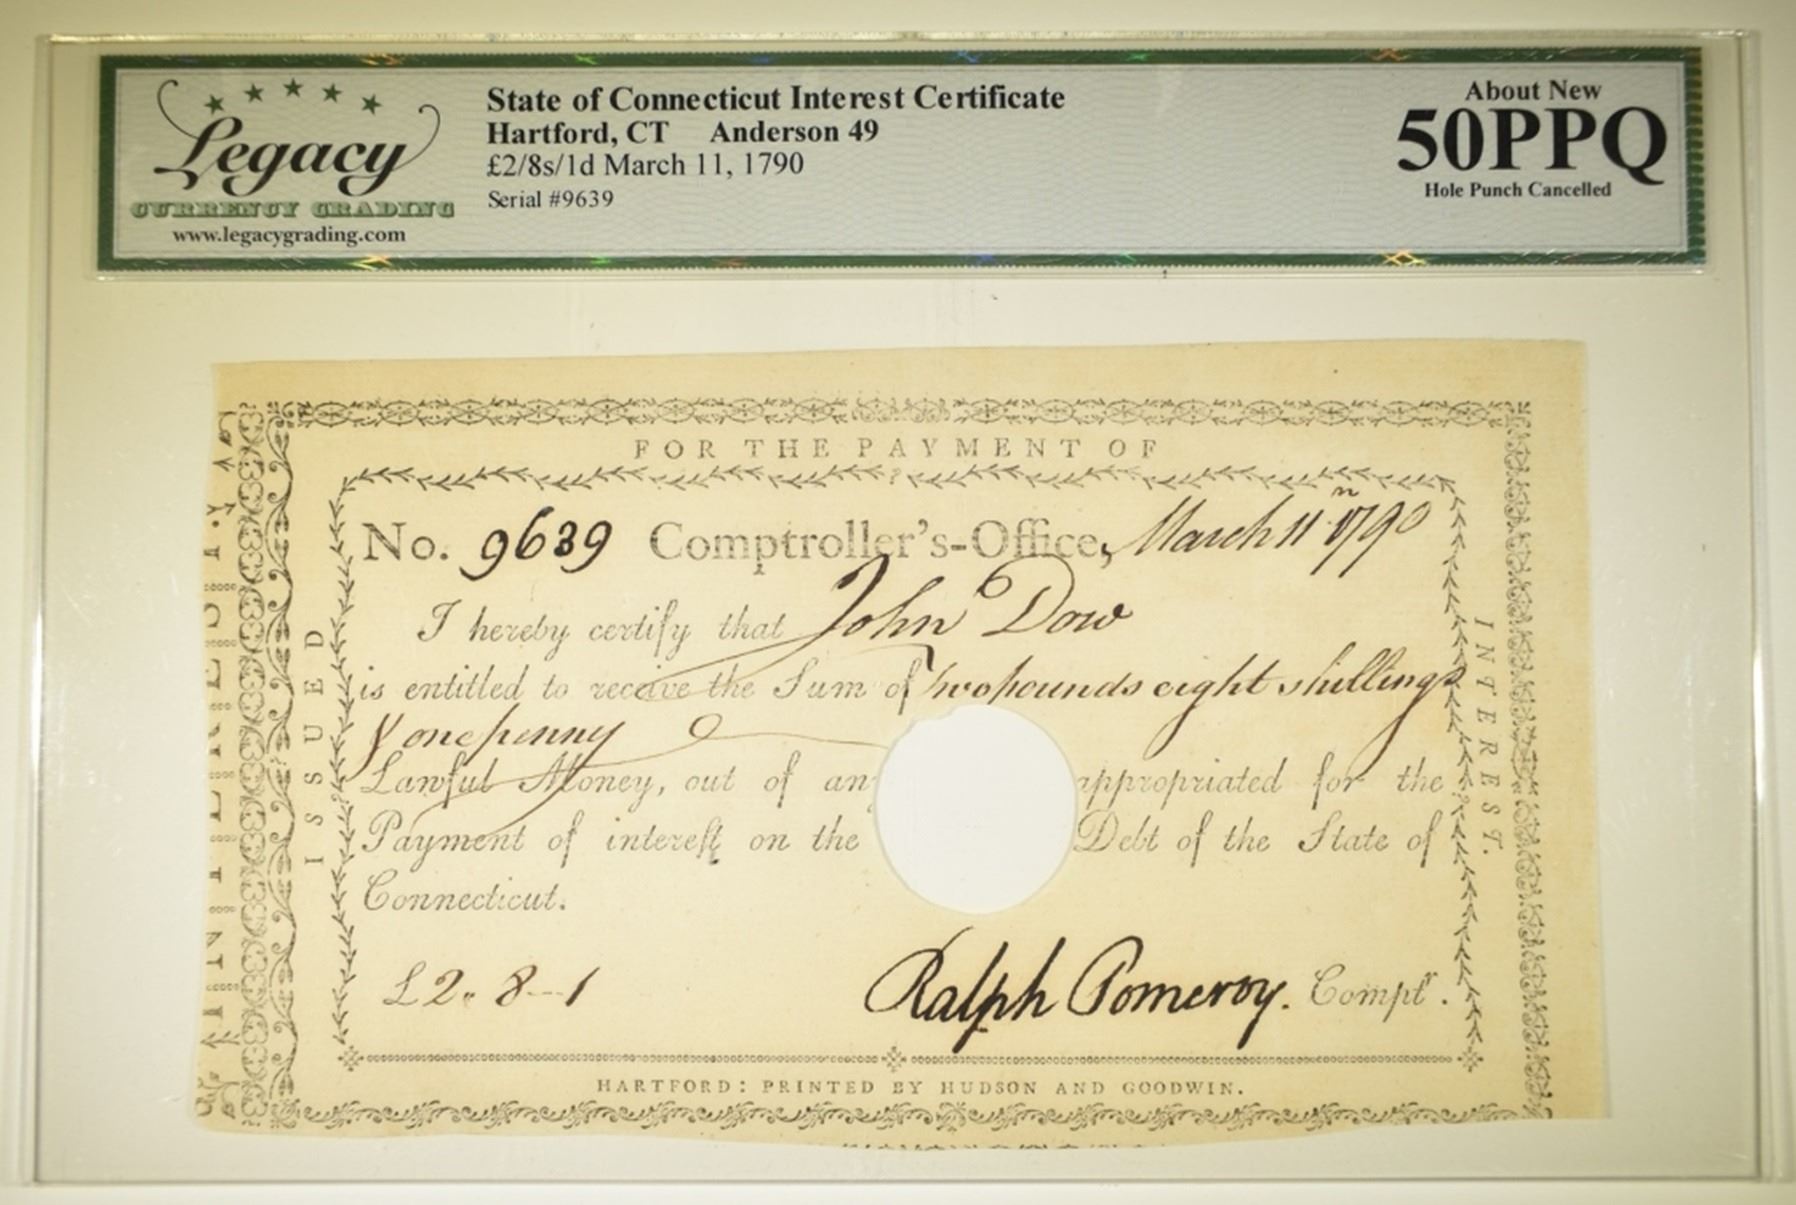 Legacy
CURRENCY GRADING
www.legacygrading.com
State of Connecticut Interest Certificate
Hartford, CT Anderson 49
£2/8s/1d March 11, 1790
Serial #9639
About New
50PPQ
Hole Punch Cancelled
FOR THE PAYMENT OF
ISSUED
INTEREST.
No. 9639 Comptroller's-Office, March 11 1790
I hereby certify that John Dow
is entitled to receive the Sum of two pounds eight shillings
& one penny
Lawful Money, out of any appropriated for the
Payment of interest on the Debt of the State of
Connecticut.
£2. 8--1 Ralph Pomeroy. Compt.r
HARTFORD: PRINTED BY HUDSON AND GOODWIN.